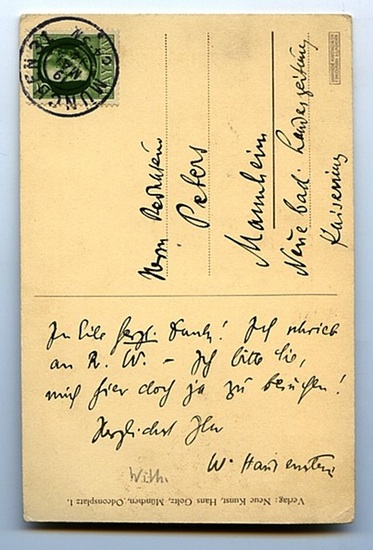 MÜNCHEN
Herrn Redakteur
Peters
Mannheim
Neue bad. Landeszeitung
Kaiserring
In Eile herzl. Dank! Ich schrieb
an R. W. – Ich bitte Sie,
mich hier doch ja zu besuchen!
Herzlichst Ihr
W. Hausenstein
Wilh.
Verlag: Neue Kunst, Hans Goltz, München, Odeonsplatz 1.